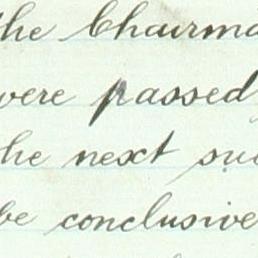 the Chairma
were passed
the next su
be conclusive